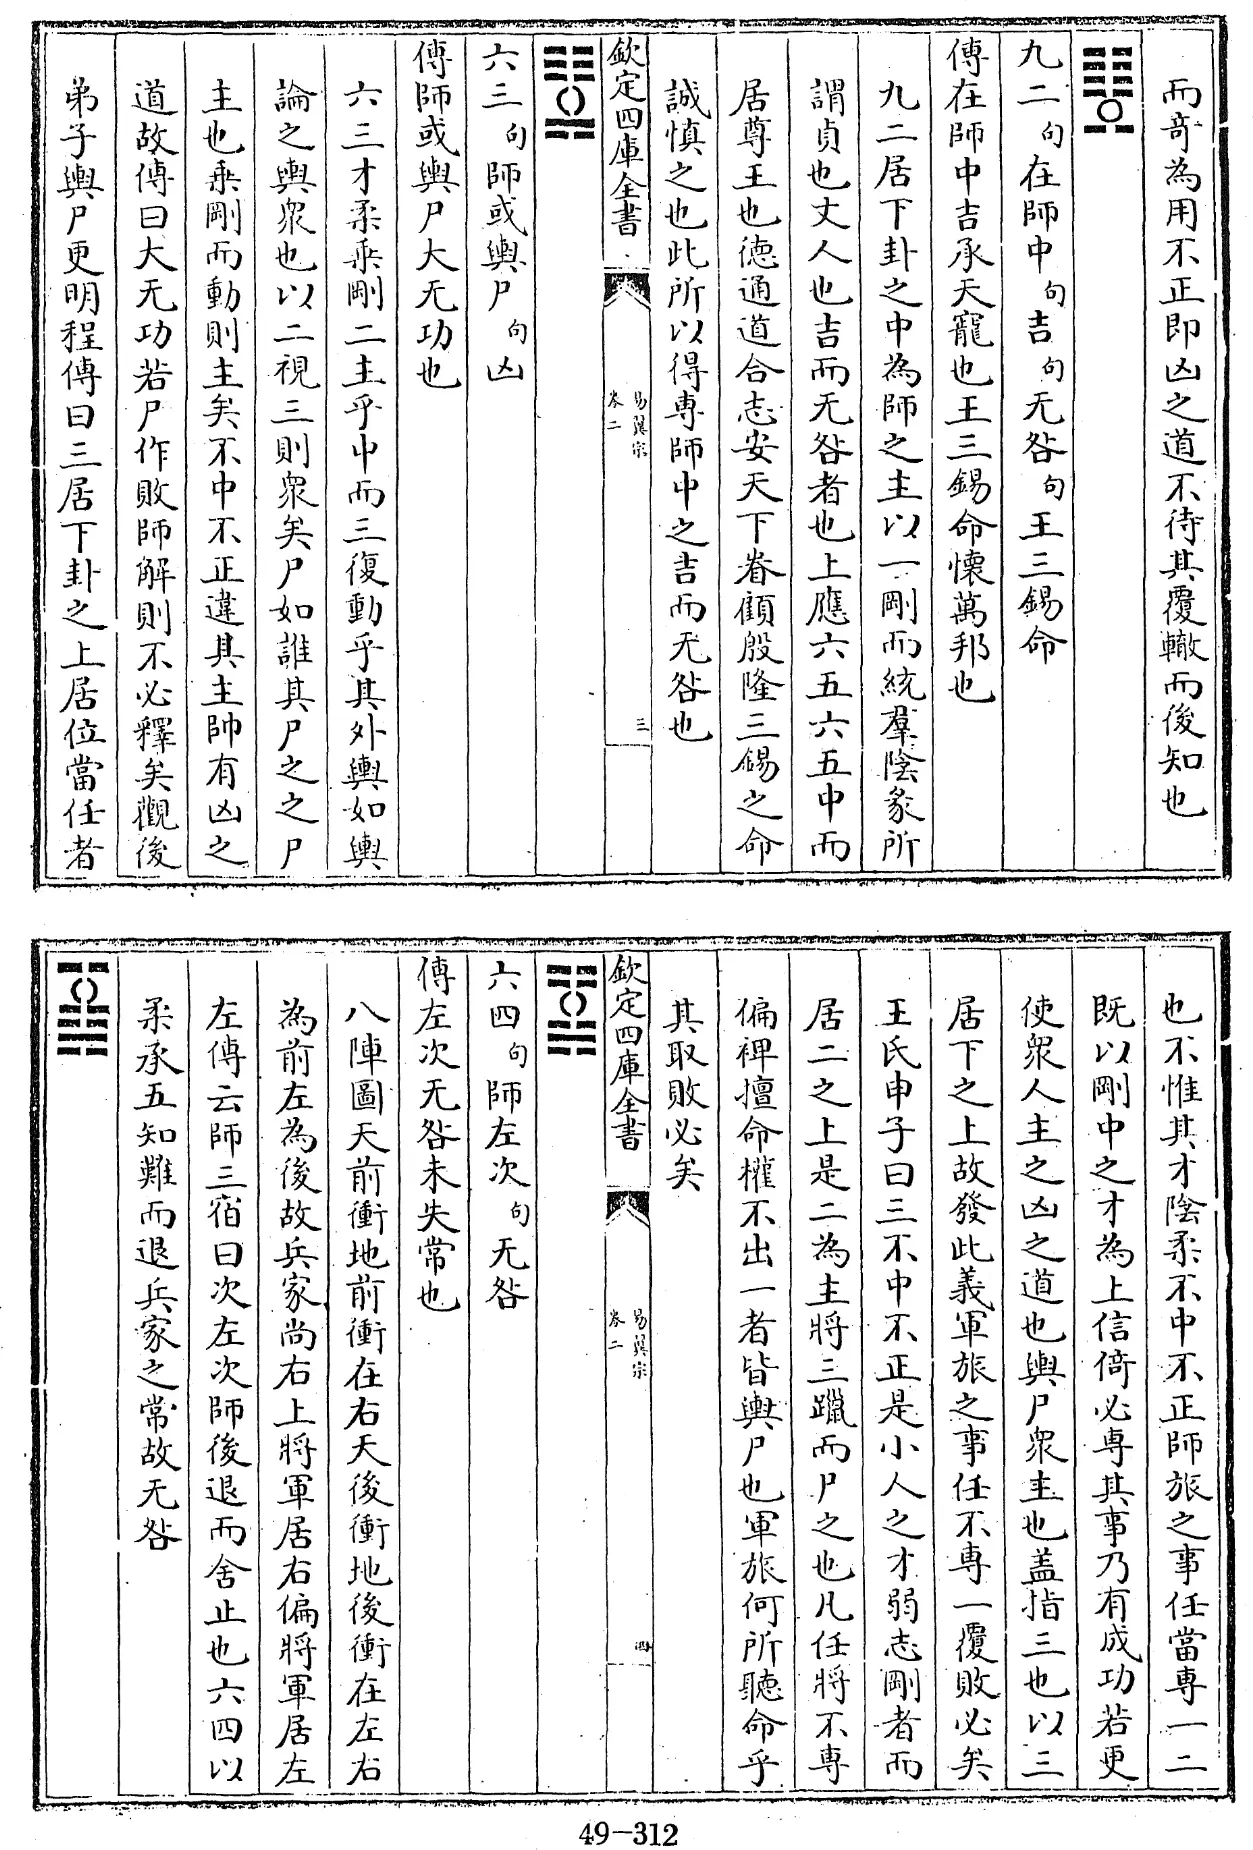 而奇為用不正即凶之道不待其覆轍而後知也
九二句在師中句吉句无咎句王三錫命
傳在師中吉承天寵也王三錫命懷萬邦也
九二居下卦之中為師之主以一剛而統羣陰彖所
謂貞也丈人也吉而无咎者也上應六五六五中而
居尊王也德通道合志安天下眷顧殷隆三錫之命
誠慎之也此所以得專師中之吉而无咎也
欽定四庫全書
易翼宗
卷二
三
六三句師或輿尸句凶
傳師或輿尸大无功也
六三才柔乘剛二主乎中而三復動乎其外輿如輿
論之輿衆也以二視三則衆矣尸如誰其尸之之尸
主也乘剛而動則主矣不中不正違其主帥有凶之
道故傳曰大无功若尸作敗師解則不必釋矣觀後
弟子輿尸更明程傳曰三居下卦之上居位當任者
也不惟其才陰柔不中不正師旅之事任當專一二
既以剛中之才為上信倚必專其事乃有成功若更
使衆人主之凶之道也輿尸衆主也盖指三也以三
居下之上故發此義軍旅之事任不專一覆敗必矣
王氏申子曰三不中不正是小人之才弱志剛者而
居二之上是二為主將三躐而尸之也凡任將不專
偏裨擅命權不出一者皆輿尸也軍旅何所聽命乎
其取敗必矣
欽定四庫全書
易翼宗
卷二
四
六四句師左次句无咎
傳左次无咎未失常也
八陣圖天前衝地前衝在右天後衝地後衝在左右
為前左為後故兵家尚右上將軍居右偏將軍居左
左傳云師三宿曰次左次師後退而舍止也六四以
柔承五知難而退兵家之常故无咎
49-312